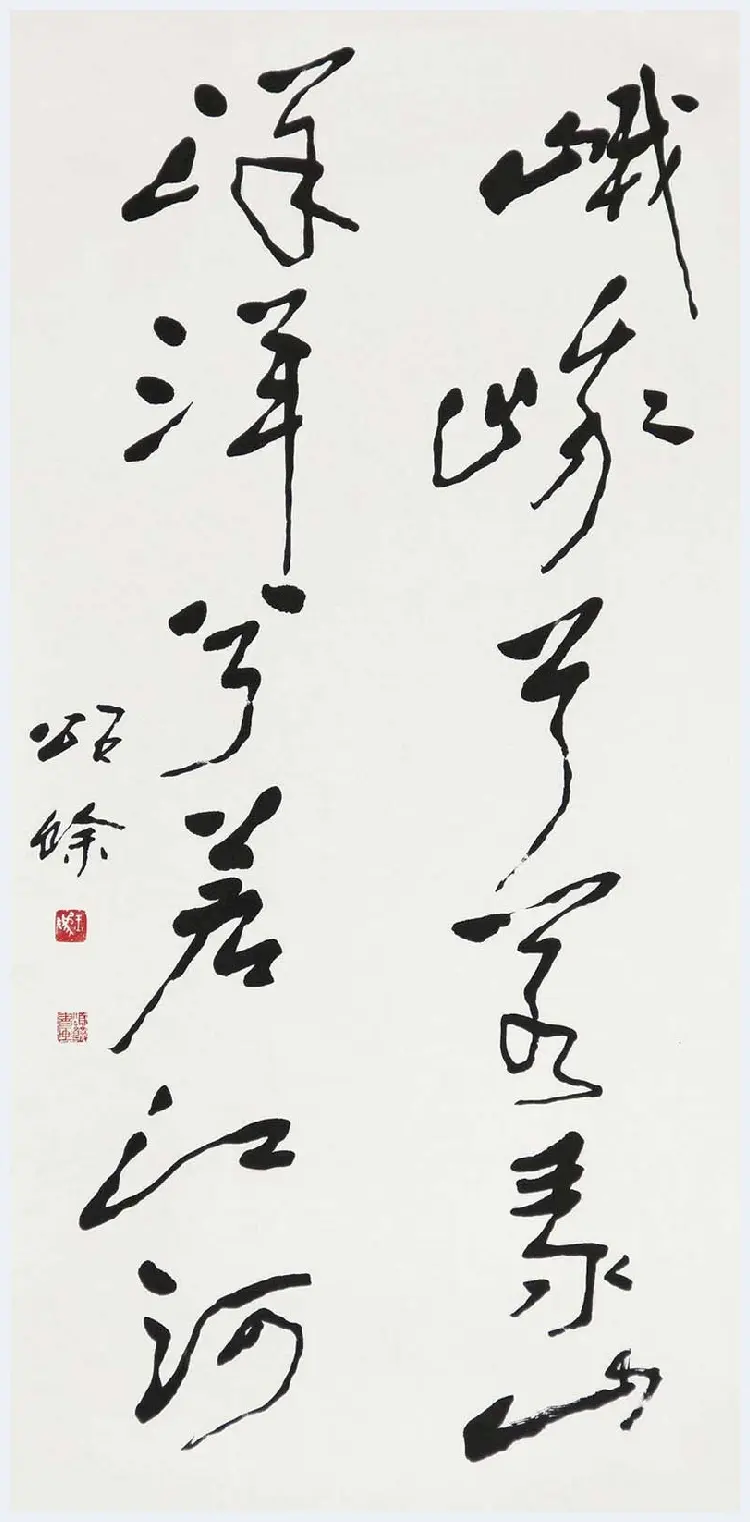 峨峨兮若泰山
洋洋兮若江河
颂馀